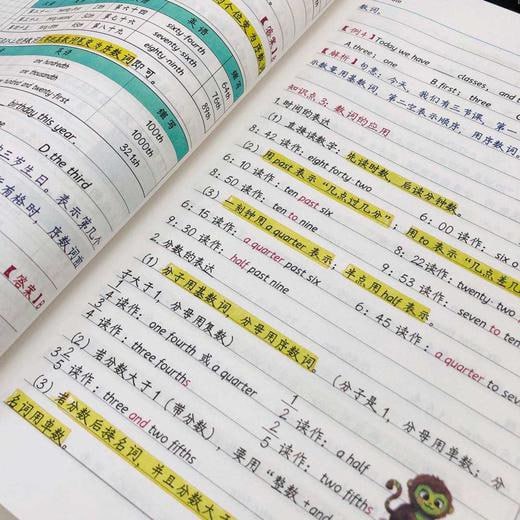 英语
缩写
第六十四
sixty fourth
64th
第七十六
seventy sixth
76th
第八十九
eighty-ninth
89th
英语
缩写
one hundredth
100th
one thousandth
1000th
321sh
birthday this year.
D.the third
三岁生日。表示第几个
有格时，序数词前
【答案】B
数词。
【例1】Today we have
classes, and
A.three; one
B.first; three
【解析】句意：今天，我们有三节课，第一
示数量用基数词，第二空表示顺序，用序数词。
知识点3：数词的应用
1.时间的表达
（1）直接读数字：先读时数，后读分钟数。
8：42 读作：eight forty-two
6：00 读作：six o
（2）用past表示“几点过几分”；用to表示“几点差几
6：10 读作：ten past six
8：22读作：twenty-two
8：50 读作：ten to nine
9：53 读作：seven to ten
（3）一刻钟用a quarter表示；半点用half表示。
6：15 读作：a quarter past six
6：45 读作：a quarter to seven
9：30 读作：half past nine
2.分数的表达
（1）分子用基数词，分母用序数词。（分子是1，分母用单数；分
子大于1，分母用复数）
1/4 读作：one fourth 或 a quarter
1/2 读作：a half
3/4 读作：three fourths
2/5 读作：two fifths
（2）若分数大于1（带分数），要用“整数+and
3 2/5 读作：three and two fifths
（3）若分数后接名词，并且分数大于
名词用单数。